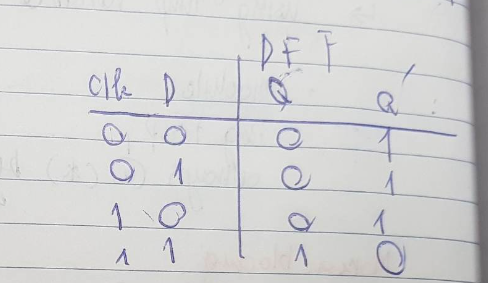 DFF
Clk D Q Q'
0 0 0 1
0 1 0 1
1 0 0 1
1 1 1 0